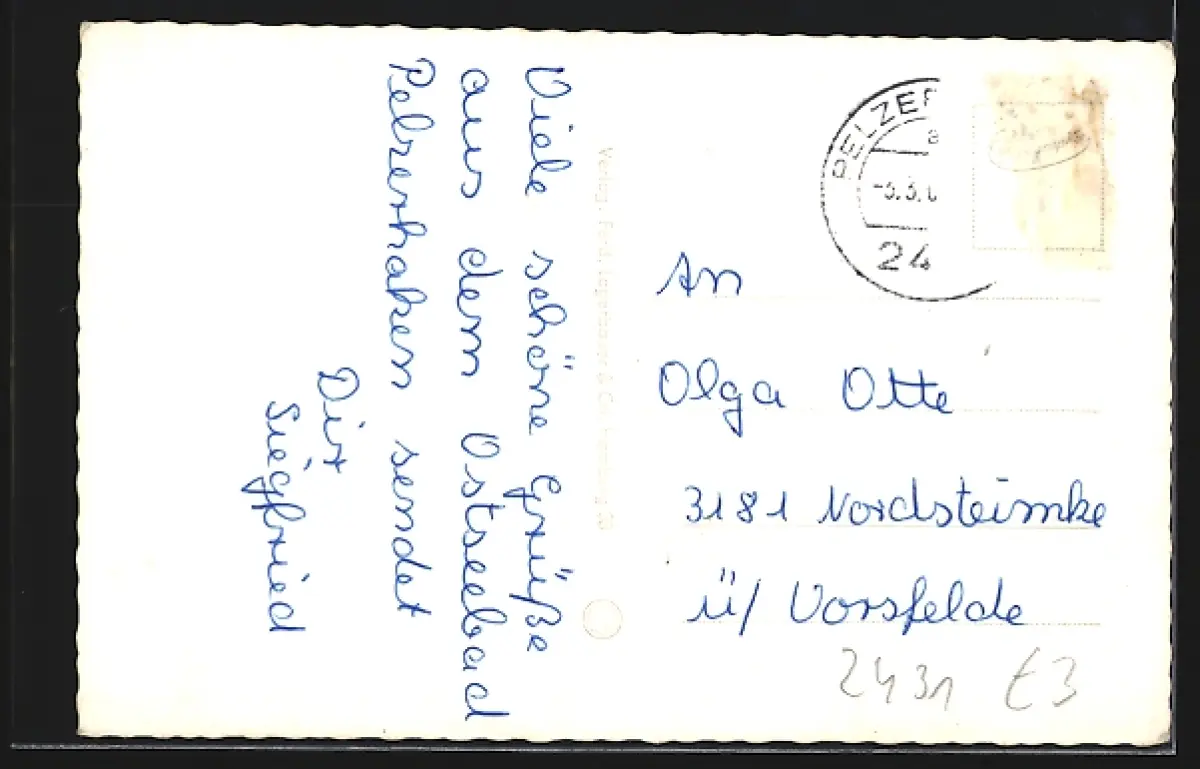 Viele schöne Grüße
aus dem Ostseebad
Pelzerhaken sendet
Dir
Siegfried
An
Olga Otte
3181 Nordsteimke
ü/ Vorsfelde
2431 €3
PELZER
24